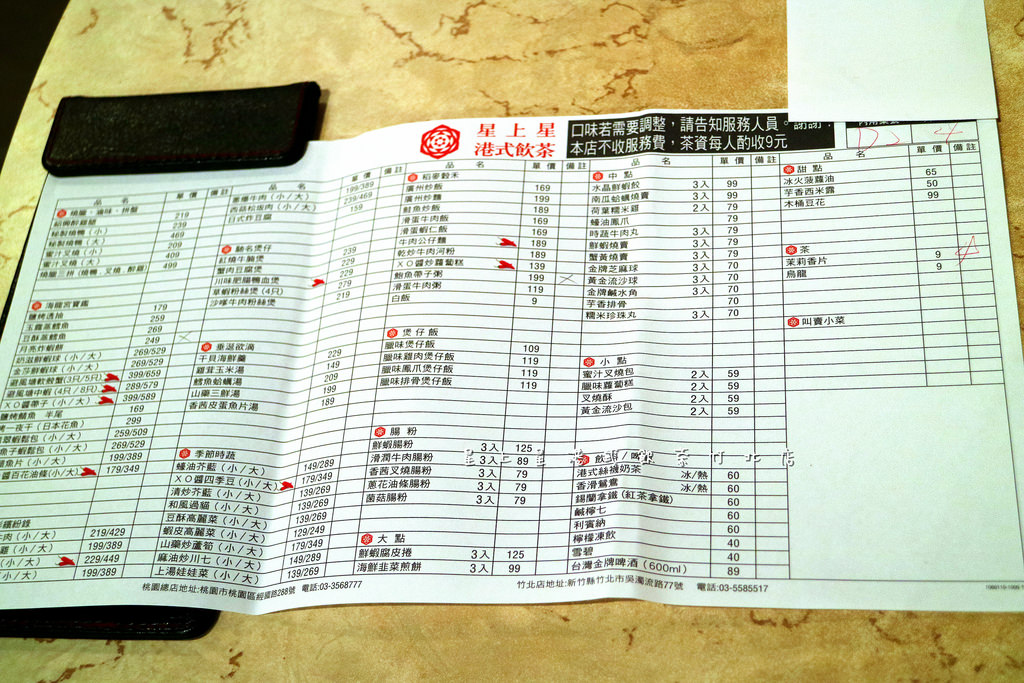 星上星
港式飲茶
口味若需要調整，請告知服務人員。謝謝！
本店不收服務費，茶資每人酌收9元
品名 單價 備註
燒臘、滷味、拼盤
219
239
秘製燒鴨（小） 469
秘製燒鴨（大） 209
蜜汁叉燒（小） 409
蜜汁叉燒（大） 499
燒臘三拼（燒鴨、叉燒、醉雞）
海龍宮寶鑑
鹽烤透抽 179
玉露蒸鱈魚 259
豆酥蒸鱈魚 269
月亮炸蝦餅 249
奶滋鮮蝦球（小／大） 269/529
金莎鮮蝦球（小／大） 269/529
避風塘軟殼蟹（3只/5只） 399/659
避風塘中蝦（4只／8只） 289/579
ＸＯ醬帶子（小／大） 399/589
鹽烤鯖魚 半尾 169
烤一夜干（日本花魚） 299
翠蝦鬆包（小／大） 259/509
魚子蝦鬆包（小／大） 269/529
魚片（小／大） 199/389
醬百花油條（小／大） 179/349
牛肉（小／大） 219/429
雞（小／大） 199/389
（小／大） 229/449
（小／大） 199/389
品名 單價 備註
蔥爆牛肉（小／大） 199/389
西菇松坂肉（小／大） 239/469
日式炸豆腐 159
馳名煲仔
紅燒牛腩煲 239
蟹肉豆腐煲 229
川味肥腸鴨血煲 229
草蝦粉絲煲（4只） 279
沙嗲牛肉粉絲煲 219
垂涎欲滴
干貝海鮮羹 229
雞茸玉米湯 149
鱈魚蛤蠣湯 209
山藥三鮮湯 199
香茜皮蛋魚片湯 189
季節時蔬
蠔油芥藍（小／大） 149/289
ＸＯ醬四季豆（小／大） 179/349
清炒芥藍（小／大） 139/269
和風過貓（小／大） 139/269
豆酥高麗菜（小／大） 139/269
蝦皮高麗菜（小／大） 129/249
山藥炒蘆筍（小／大） 179/349
麻油炒川七（小／大） 149/289
上湯娃娃菜（小／大） 139/269
品名 單價 備註
稻麥穀禾
廣州炒飯 169
廣州炒麵 199
鮭魚炒飯 169
滑蛋牛肉飯 189
滑蛋蝦仁飯 189
牛肉公仔麵 169
乾炒牛肉河粉 189
ＸＯ醬炒蘿蔔糕 139
鮑魚帶子粥 199
滑蛋牛肉粥 119
白飯 9
煲仔飯
臘味煲仔飯 109
臘味雞肉煲仔飯 119
臘味鳳爪煲仔飯 119
臘味排骨煲仔飯 119
腸粉
鮮蝦腸粉 3入 125
滑潤牛肉腸粉 3入 89
香茜叉燒腸粉 3入 79
蔥花油條腸粉 3入 79
菌菇腸粉 3入 79
大點
鮮蝦腐皮捲 3入 125
海鮮韭菜煎餅 3入 99
品名 單價 備註
中點
水晶鮮蝦餃 3入 99
南瓜蛤蠣燒賣 3入 99
荷葉糯米雞 2入 79
蠔油鳳爪 79
時蔬牛肉丸 3入 79
鮮蝦燒賣 3入 79
蟹黃燒賣 3入 79
金牌芝麻球 3入 70
黃金流沙球 3入 70
金牌鹹水角 3入 70
芋香排骨 70
糯米珍珠丸 3入 70
小點
蜜汁叉燒包 2入 59
臘味蘿蔔糕 2入 59
叉燒酥 2入 59
黃金流沙包 2入 59
港式絲襪奶茶 冰/熱 60
香滑鴛鴦 冰/熱 60
錫蘭拿鐵（紅茶拿鐵） 60
鹹檸七 60
利賓納 60
檸檬凍飲 40
雪碧 40
台灣金牌啤酒（600ml） 89
品名 單價 備註
甜點
冰火菠蘿油 65
芋香西米露 50
木桶豆花 99
茶
茉莉香片 9 4
烏龍 9
叫賣小菜
桃園總店地址:桃園市桃園區經國路288號 電話:03-3568777
竹北店地址:新竹縣竹北市吳濁流路77號 電話:03-5585517
星上星港式飲茶竹北店